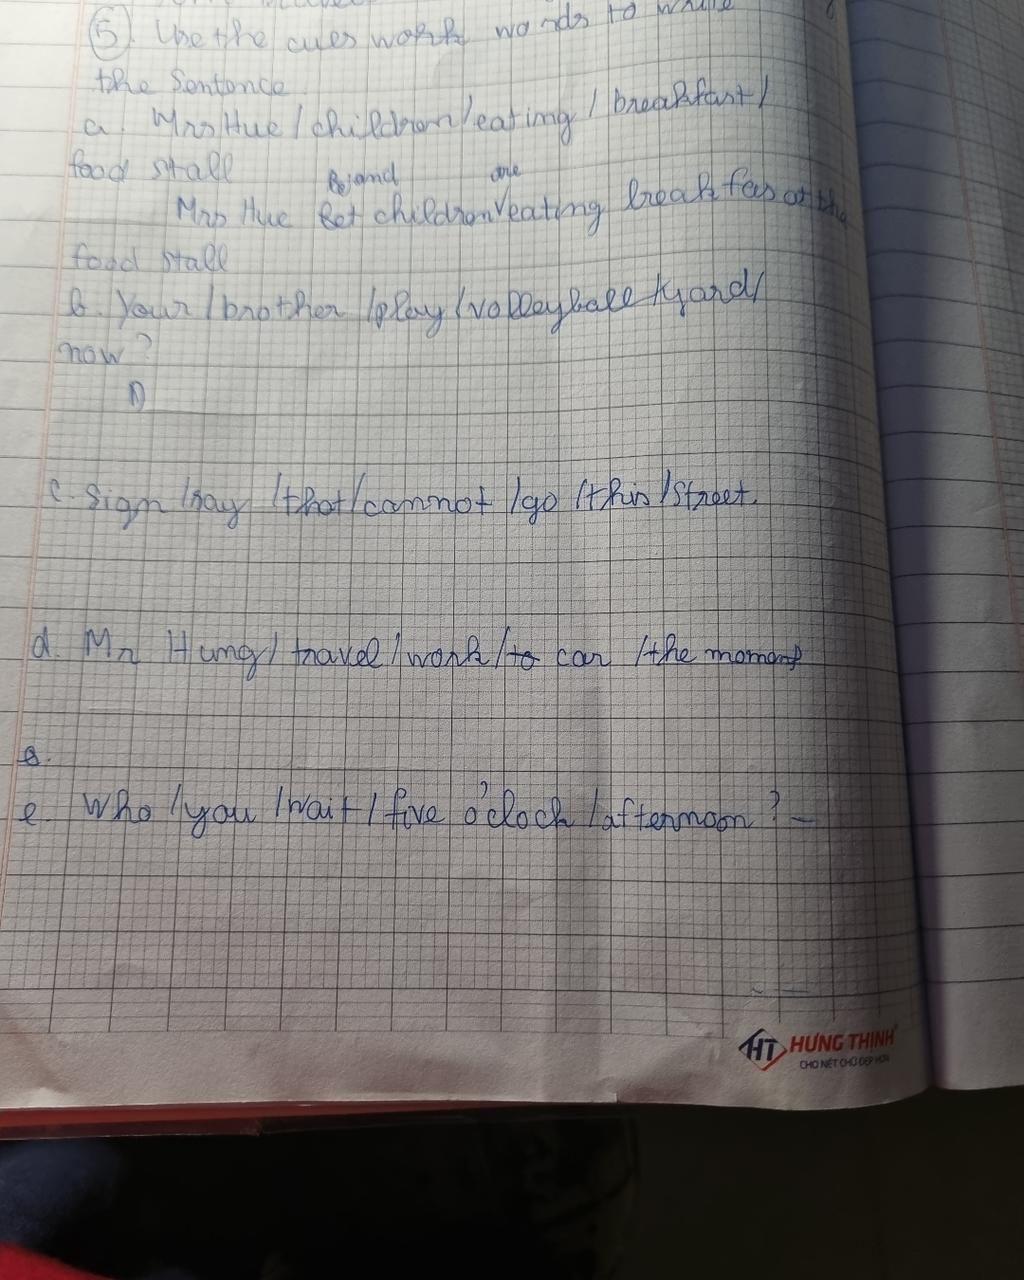 5. Use the cues work words to write
the Sentence
a. Mrs Hue / children / eating / breakfast /
food stall
and are
Mrs Hue children eating breakfas at the
food stall
b. Your / brother / play / volleyball / yard /
now?
D
c. Sign / say / that / cannot / go / this / street.
d. Mr Hung / travel / work / to car / the moment
e.
e. Who / you / wait / five o'clock / afternoon? -
HT HƯNG THỊNH
CHO NÉT CHỮ ĐẸP HƠN